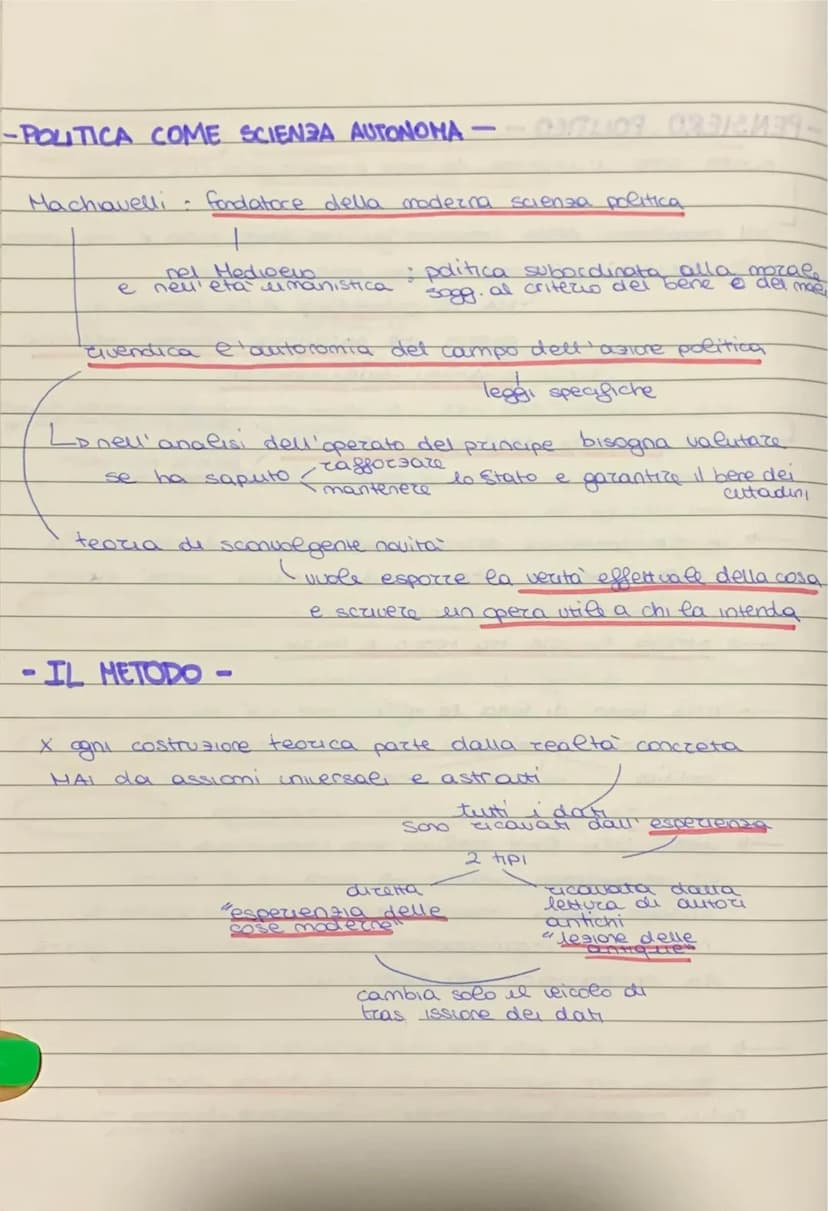 - POLITICA COME SCIENZA AUTONOMA -
Machiavelli : fondatore della moderna scienza politica
nel Medioevo : politica subordinata alla morale
e nell'età umanistica sogg. al criterio del bene e del male
rivendica l'autonomia del campo dell'azione politica
leggi specifiche
nell'analisi dell'operato del principe bisogna valutare
se ha saputo rafforzare lo Stato e garantire il bene dei
mantenere cittadini
teoria di sconvolgente novità
vuole esporre la verità effettuale della cosa
e scrivere un opera utile a chi la intenda
- IL METODO -
x ogni costruzione teorica parte dalla realtà concreta
MAI da assiomi universali e astratti
tutti i dati
sono ricavati dall' esperienza
2 tipi
diretta
"esperienzia delle
cose moderne"
ricavata dalla
lettura di autori
antichi
"lezione delle
antique"
cambia solo il veicolo di
tras issione dei dati
- PENSIERO POLITICO -